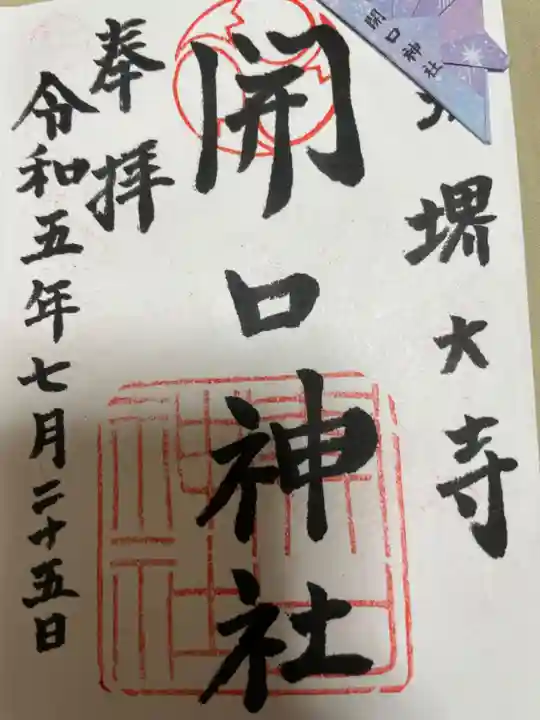 堺大寺
開口神社
奉拝
令和五年七月二十五日
開口神社